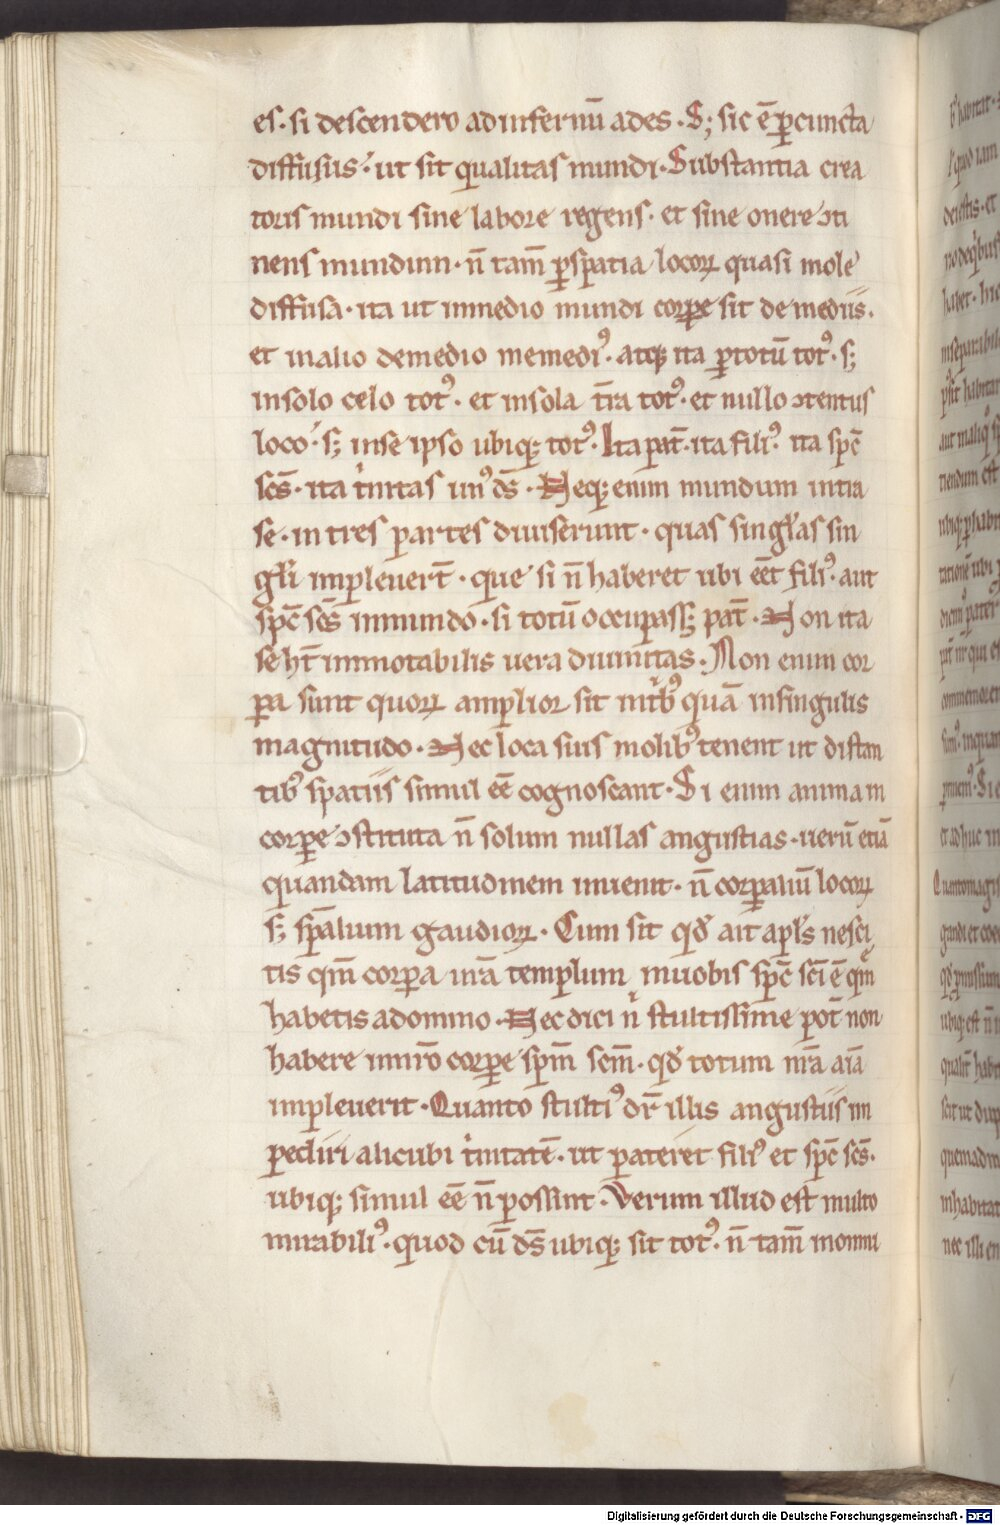 es · si descendero ad infernū ades · S; sic ē ꝑ cuncta
diffusus · ut sit qualitas mundi · Substantia crea
toris mundi sine labore regens · et sine onere ↄti
nens mundum · n̄ tam̄ ꝑ spatia locoꝝ quasi mole
diffusa · ita ut in medio mundi corꝑe sit de mediis ·
et in alio de medio memediꝰ · atqꝫ ita ꝑ totū totꝰ · s;
in solo celo totꝰ · et in sola t̄ra totꝰ · et nullo ↄtentus
loco · s; in se ipso ubiqꝫ totꝰ · Ita pat̄ · ita filiꝰ ita spc̄
sc̄s · ita tͥnitas unꝰ ds̄ · Neqꝫ enim mundum intra
se · in tres partes diuiserunt · quas singl̓as sin
gl̓i impleuer̄t · que si n̄ haberet ubi eēt filiꝰ · aut
spc̄ sc̄s in mundo · si totū occupassꝫ pat̄ · Non ita
se ht̄ inmotabilis uera diuinitas · Non enim cor
pa sunt quoꝝ amplior sit in tͥbꝰ quā in singulis
magnitudo · Nec loca suis molibꝰ tenent ut distan
tibꝰ spatiis simul eē cognoscant · Si enim anima in
corꝑe ↄstituta n̄ solum nullas angustias · uerū etiā
quandam latitudinem inuenit · n̄ corꝑaliū locoꝝ
s; sp̄alium gaudioꝝ · Cum sit qd̓ ait apl̓s nesci
tis qm̄ corpora ur̄a templum in uobis spc̄ sc̄i ē qm̄
habetis a domino · Nec dici nͥ stultissime pot̄ non
habere in nr̄o corꝑe spm̄ scm̄ · qd̓ totum nr̄a aīa
impleuerit · Quanto stultiꝰ dr̄ illis angustiis im
pediri alicubi tͥnitatē · ut pateret filiꝰ et spc̄ sc̄s ·
ubiqꝫ simul eē n̄ possint · Verum illud est multo
mirabiliꝰ · quod cū ds̄ ubiqꝫ sit totꝰ · n̄ tam̄ in omni
Digitalisierung gefördert durch die Deutsche Forschungsgemeinschaft - DFG